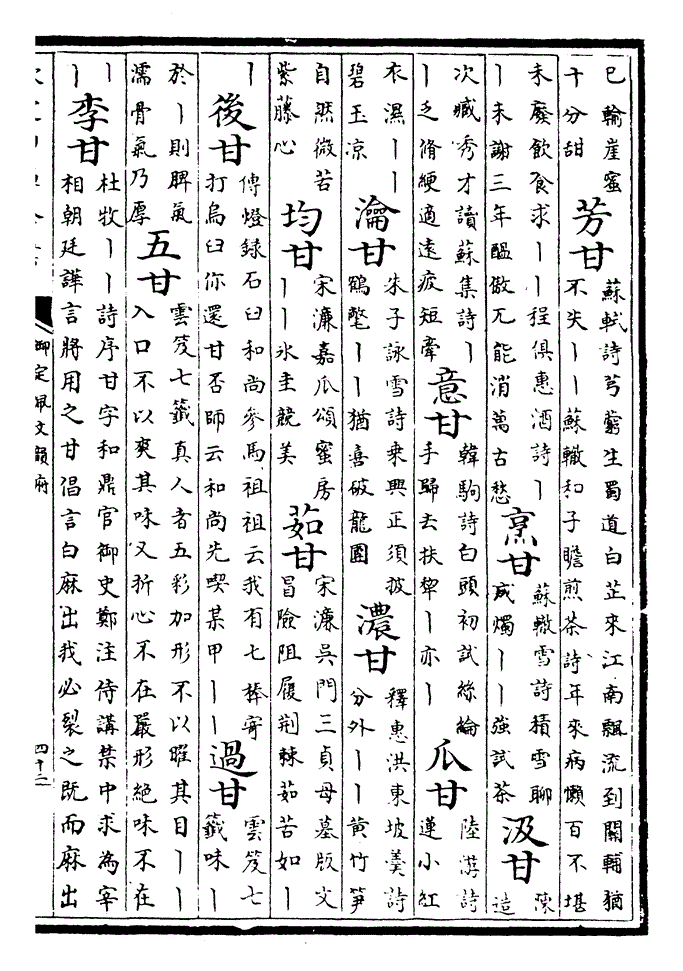 已輪崖蜜十分甜 芳甘 蘇軾詩芎藭生蜀道白芷來江南飄流到關輔猶不失丨丨蘇轍和子瞻煎茶詩年來病懶百不堪
未廢飲食求丨丨程俱惠酒詩丨丨未謝三年醞傲兀能消萬古愁 烹甘 蘇轍雪詩積雪聊咸燭丨丨強試茶 汲甘 陳造
次臧秀才讀蘇集詩丨丨乏脩綆適遠疲短牽 意甘 韓駒詩白頭初試絲綸手歸去扶犂丨亦丨 瓜甘 陸游詩蓮小紅
衣濕丨丨碧玉凉 瀹甘 朱子詠雪詩乘興正須披鶴氅丨丨猶喜破龍團 濃甘 釋惠洪東坡羹詩分外丨丨黄竹筍
自然微苦紫藤心 均甘 宋濂嘉瓜頌蜜房丨丨氷圭競美 茹甘 宋濂吳門三貞母墓版文冒險阻履荆棘茹苦如丨
丨 後甘 傳燈録石臼和尚參馬祖祖云我有七棒寄打烏臼你還甘否師云和尚先喫某甲丨丨 過甘 雲笈七籤味丨
於丨則脾氣濡骨氣乃厚 五甘 雲笈七籤真人者五彩加形不以曜其目丨丨入口不以爽其味又折心不在嚴形絶味不在
丨丨 李甘 杜牧丨丨詩序甘字和鼎官御史鄭注侍講禁中求為宰相朝廷譁言將用之甘倡言白麻出我必裂之既而麻出
御定佩文韻府
四十二